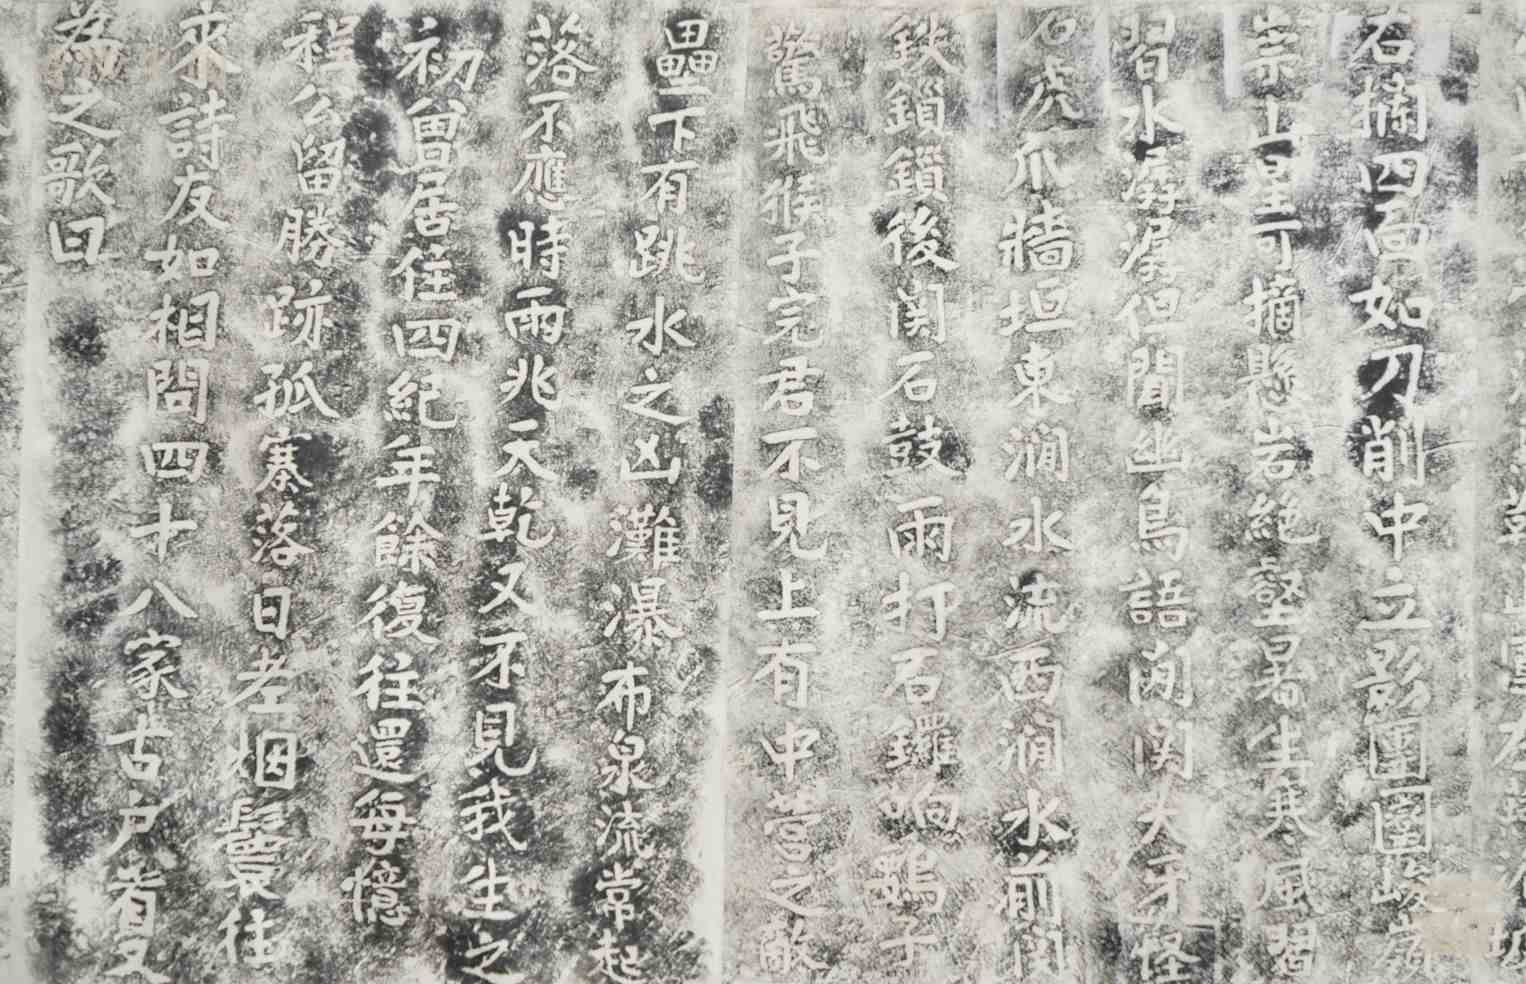 右掬四高如刀削中立影團團峻嶺
崇山星可摘懸岩絕壑暑生寒風習
習水潺潺但聞幽鳥語関関大牙怪
石虎爪墻坦東澗水流西澗水前関
鉄鎖鎖後関石鼓雨打石鑼响鷂子
驚飛猴子完君不見上有中营之敵
壘下有跳水之凶灘瀑布泉流常起
落不應時雨兆天乾又不見我生之
初曾居住四紀年餘復往還每憶
程公留勝跡孤寨落日老烟鬟往
來詩友如相問四十八家古户者又
為之歌曰